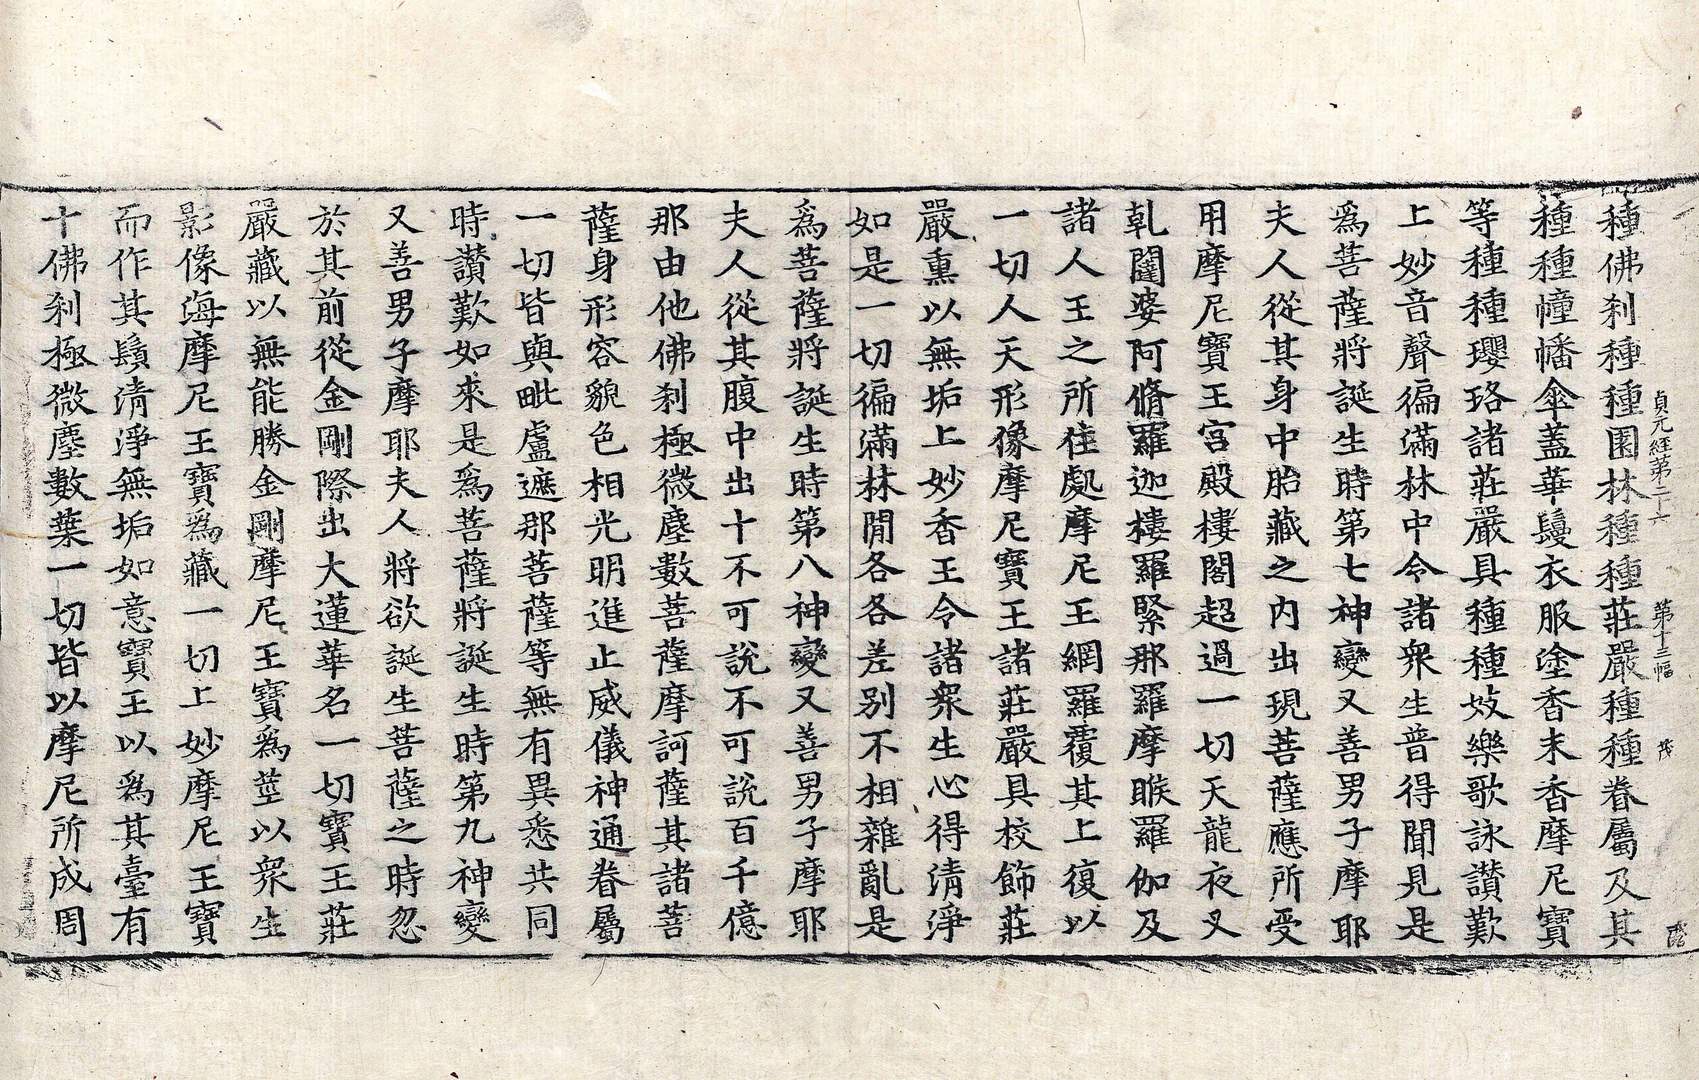 貞元経第二十六 第十三幅 茂
種佛刹種種園林種種莊嚴種種眷屬及其
種種幢幡傘蓋華鬘衣服塗香末香摩尼寶
等種種瓔珞諸莊嚴具種種妓樂歌詠讃歎
上妙音聲徧滿林中令諸衆生普得聞見是
爲菩薩將誕生時第七神變又善男子摩耶
夫人從其身中胎藏之内出現菩薩應所受
用摩尼寶王宮殿樓閣超過一切天龍夜叉
乹闥婆阿脩羅迦樓羅緊那羅摩睺羅伽及
諸人王之所住處摩尼王網羅覆其上復以
一切人天形像摩尼寶王諸莊嚴具校飾莊
嚴熏以無垢上妙香王令諸衆生心得清淨
如是一切徧滿林閒各各差别不相雜亂是
爲菩薩將誕生時第八神變又善男子摩耶
夫人從其腹中出十不可說不可說百千億
那由他佛刹極微塵數菩薩摩訶薩其諸菩
薩身形容貌色相光明進止威儀神通眷屬
一切皆與毗盧遮那菩薩等無有異悉共同
時讃歎如來是爲菩薩將誕生時第九神變
又善男子摩耶夫人將欲誕生菩薩之時忽
於其前從金剛際出大蓮華名一切寶王莊
嚴藏以無能勝金剛摩尼王寶爲莖以衆生
影像海摩尼王寶爲藏一切上妙摩尼王寶
而作其鬚清淨無垢如意寶王以爲其臺有
十佛刹極微塵數葉一切皆以摩尼所成周